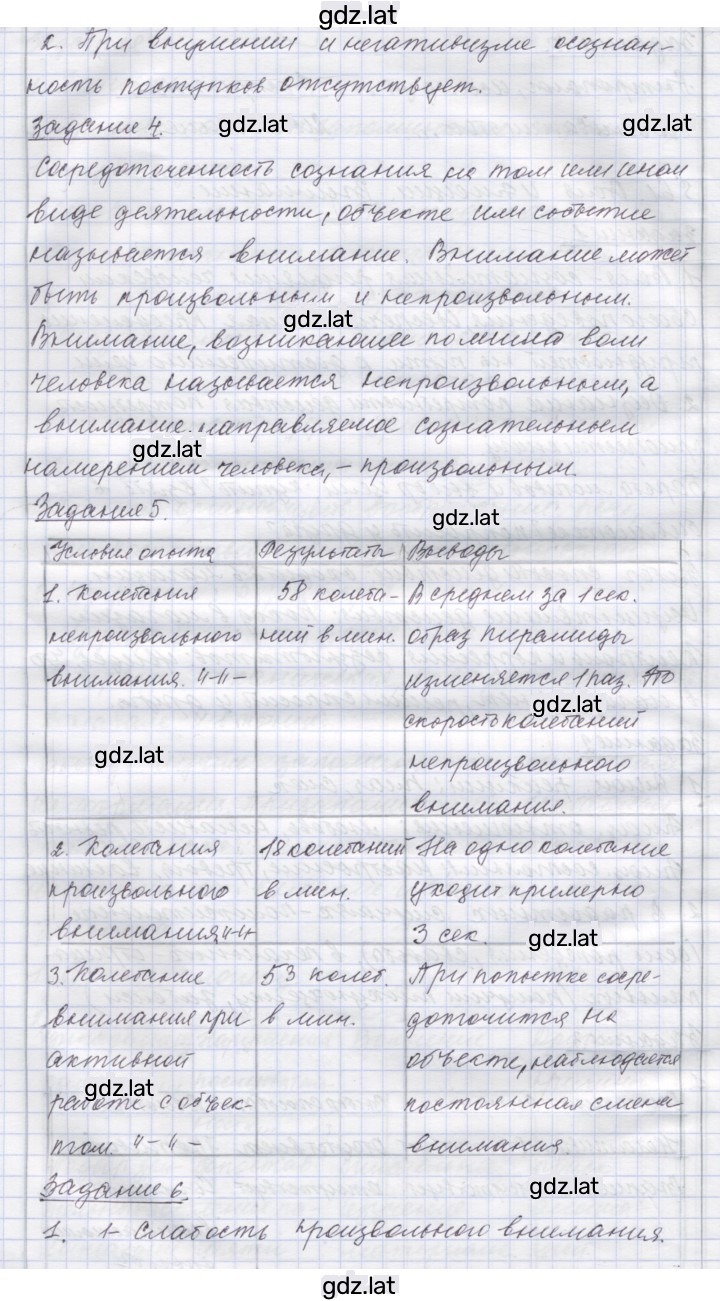 gdz.lat
2. При внушении и негативизме осознан-
ность поступков отсутствует.
Задание 4.
gdz.lat
gdz.lat
Сосредоточенность сознания на том или ином
виде деятельности, объекте или событие
называется внимание. Внимание может
быть произвольным и непроизвольным.
gdz.lat
Внимание, возникающее помимо воли
человека называется непроизвольным, а
внимание направляемое сознательным
gdz.lat
намерением человека, – произвольным.
Задание 5.
gdz.lat
Условия опыта Результаты Выводы
1. Колебания 58 колеба- В среднем за 1 сек.
непроизвольного ний в мин. образ пирамиды
внимания. "-"- изменяется 1 раз. Это
gdz.lat
скорость колебаний
gdz.lat
непроизвольного
внимания.
2. Колебания 18 колебаний На одно колебание
произвольного в мин. уходит примерно
внимания "-"- 3 сек.
gdz.lat
3. Колебание 53 колеб. При попытке сосре-
внимания при в мин. доточится на
активной объекте, наблюдается
gdz.lat
работе с объек- постоянная смена
том. "-"- внимания.
Задание 6.
gdz.lat
1. 1- Слабость произвольного внимания.
gdz.lat